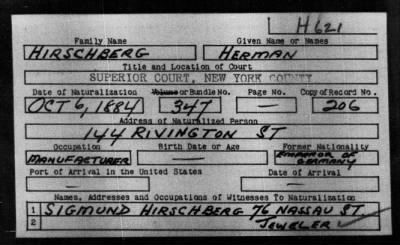 H621
Family Name Given Name or Names
HIRSCHBERG HERMAN
Title and Location of Court
SUPERIOR COURT, NEW YORK COUNTY
Date of Naturalization Volume or Bundle No. Page No. Copy of Record No.
OCT 6, 1884 347 — 206
Address of Naturalized Person
144 RIVINGTON ST
Occupation Birth Date or Age Former Nationality
MANUFACTURER — EMPEROR OF GERMANY
Port of Arrival in the United States Date of Arrival
— —
Names, Addresses and Occupations of Witnesses To Naturalization
1 SIGMUND HIRSCHBERG 76 NASSAU ST.
2 JEWELER